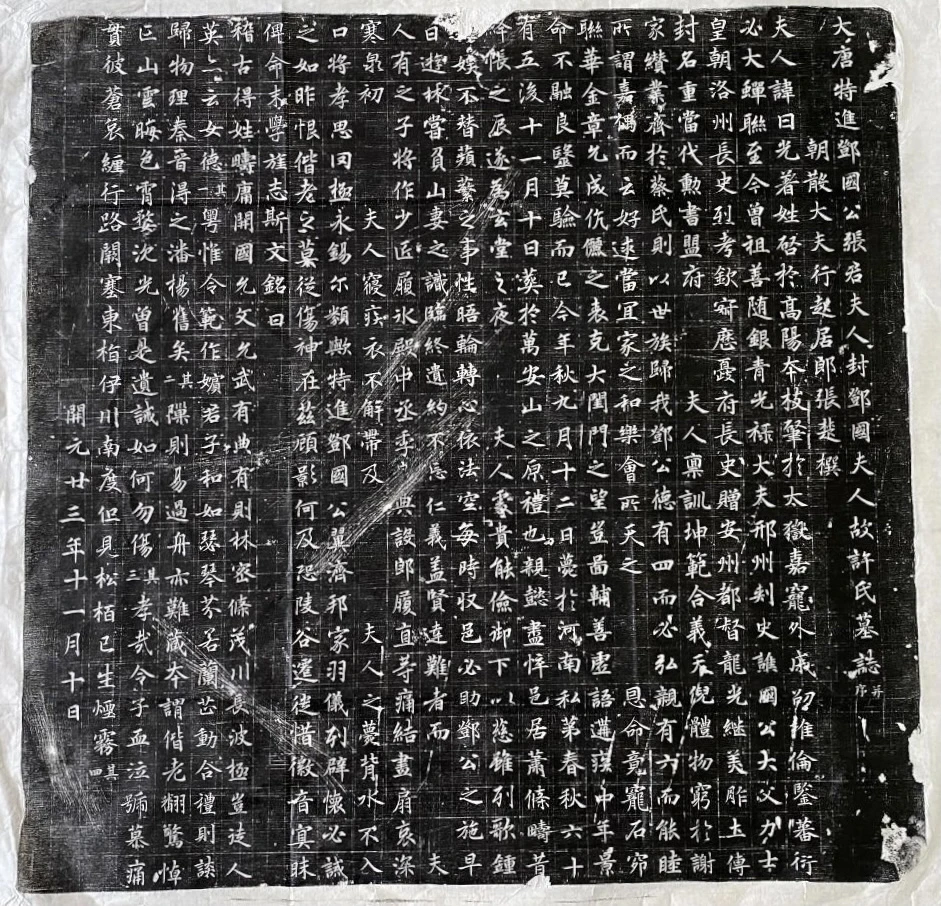 大唐特進鄧國公張君夫人封鄧國夫人故許氏墓誌并序
朝散大夫行起居郎張楚撰
夫人諱日光著姓啓於高陽本枝肇於太嶽嘉寵外戚韌維倫鑒蕃衍
必大蟬聯至今曾祖善隨銀青光祿大夫邢州刺史譙國公大父力士
皇朝洛州長史烈考欽寂應憂府長史贈安州都督龍光繼美胙土傳
封名重當代勳書盟府 夫人稟訓坤範合義天倪體物窮於謝
家纘業齊於蔡氏則以世族歸我鄧公德有四而必弘親有六而能睦
所謂嘉偶而云好逑當宜家之和樂會所天之 恩命竟寵石窌
聯華金章允成伉儷之表克大閨門之望豈啚輔善虛語遘疾中年景
命不融良毉莫驗而已今年秋九月十二日薨於河南私第春秋六十
有五浚十一月十日葬於萬安山之原禮也親懿盡悴邑居蕭條疇昔
絳帳之辰遂為玄堂之夜 夫人處貴能儉御下以慈雖列歌鍾
娛不替蘋蘩之事性晤輪轉心依法空每時收邑必助鄧公之施早
日遊梂嘗負山妻之識臨終遺約不忘仁義盖賢達難者而 夫
人有之子將作少匠履冰殿中丞季良與設郎履直等痛結畫扇哀深
寒泉初 夫人寢疾衣不解帶及 夫人之薨背水不入
口將孝思罔極永錫尔類歟特進鄧國公翼濟邦家羽儀列辟懷必誠
之如昨恨偕老之莫從傷神在茲顧影何及恐陵谷遷徙惜徽音寘昧
俾命末學旌志斯文銘曰
稽古得姓疇庸開國允文允武有典有則林密條茂川長波極豈徒人
英亦云女德其一粵惟令範作嬪君子和如瑟琴芬若蘭芷動合禮則談
歸物理秦晉淂之潘楊舊矣其二隙則易過舟亦難藏本謂偕老翻驚悼
亡山雲晦色宵婺沈光曾是遺誡如何勿傷其三孝哉令子血泣號慕痛
貫彼蒼哀纏行路闕塞東栢伊川南度但見松栢已生煙霧其四
開元廿三年十一月十日